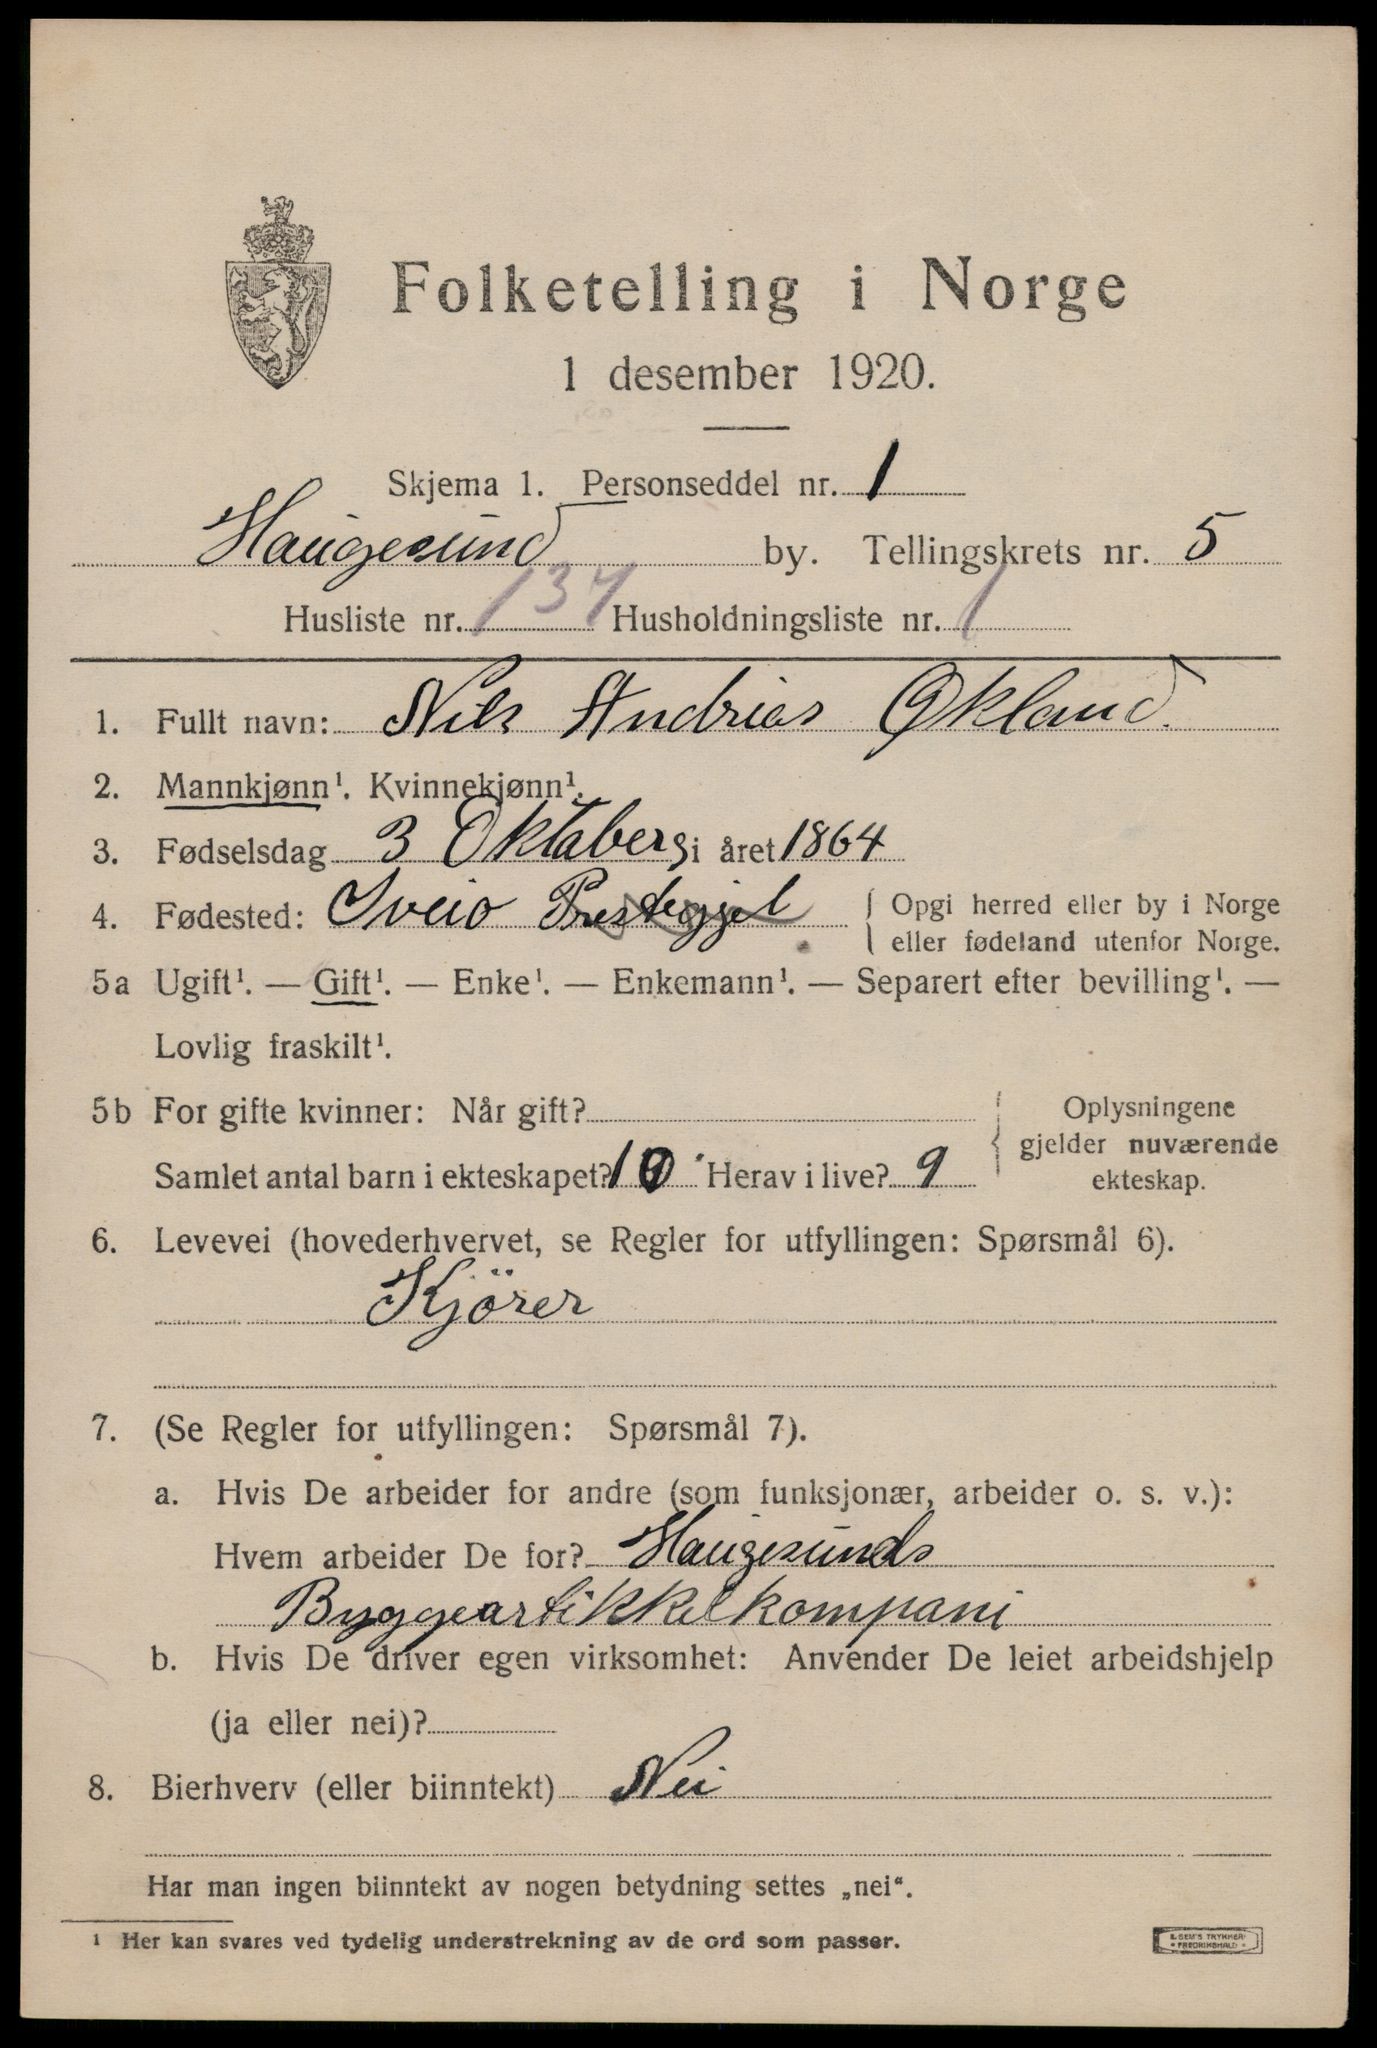 Folketelling i Norge
1 desember 1920.
Skjema 1. Personseddel nr. 1
Haugesund by. Tellingskrets nr. 5
Husliste nr. 137 Husholdningsliste nr. 1
1. Fullt navn: Nils Andrias Økland.
2. Mannkjønn¹. Kvinnekjønn¹.
3. Fødselsdag 3 Oktober i året 1864
4. Fødested: Sveio Prestegjel { Opgi herred eller by i Norge
eller fødeland utenfor Norge.
5a Ugift¹. — Gift¹. — Enke¹. — Enkemann¹. — Separert efter bevilling¹. —
Lovlig fraskilt¹.
5b For gifte kvinner: Når gift?
Samlet antal barn i ekteskapet? 10 Herav i live? 9
{ Oplysningene
gjelder nuværende
ekteskap.
6. Levevei (hovederhvervet, se Regler for utfyllingen: Spørsmål 6).
Kjörer
7. (Se Regler for utfyllingen: Spørsmål 7).
a. Hvis De arbeider for andre (som funksjonær, arbeider o. s. v.):
Hvem arbeider De for? Haugesunds
Byggeartikkelkompani
b. Hvis De driver egen virksomhet: Anvender De leiet arbeidshjelp
(ja eller nei)?
8. Bierhverv (eller biinntekt) Nei
Har man ingen biinntekt av nogen betydning settes „nei“.
¹ Her kan svares ved tydelig understrekning av de ord som passer.
E. SEM'S TRYKKERI
• FREDRIKSHALD •